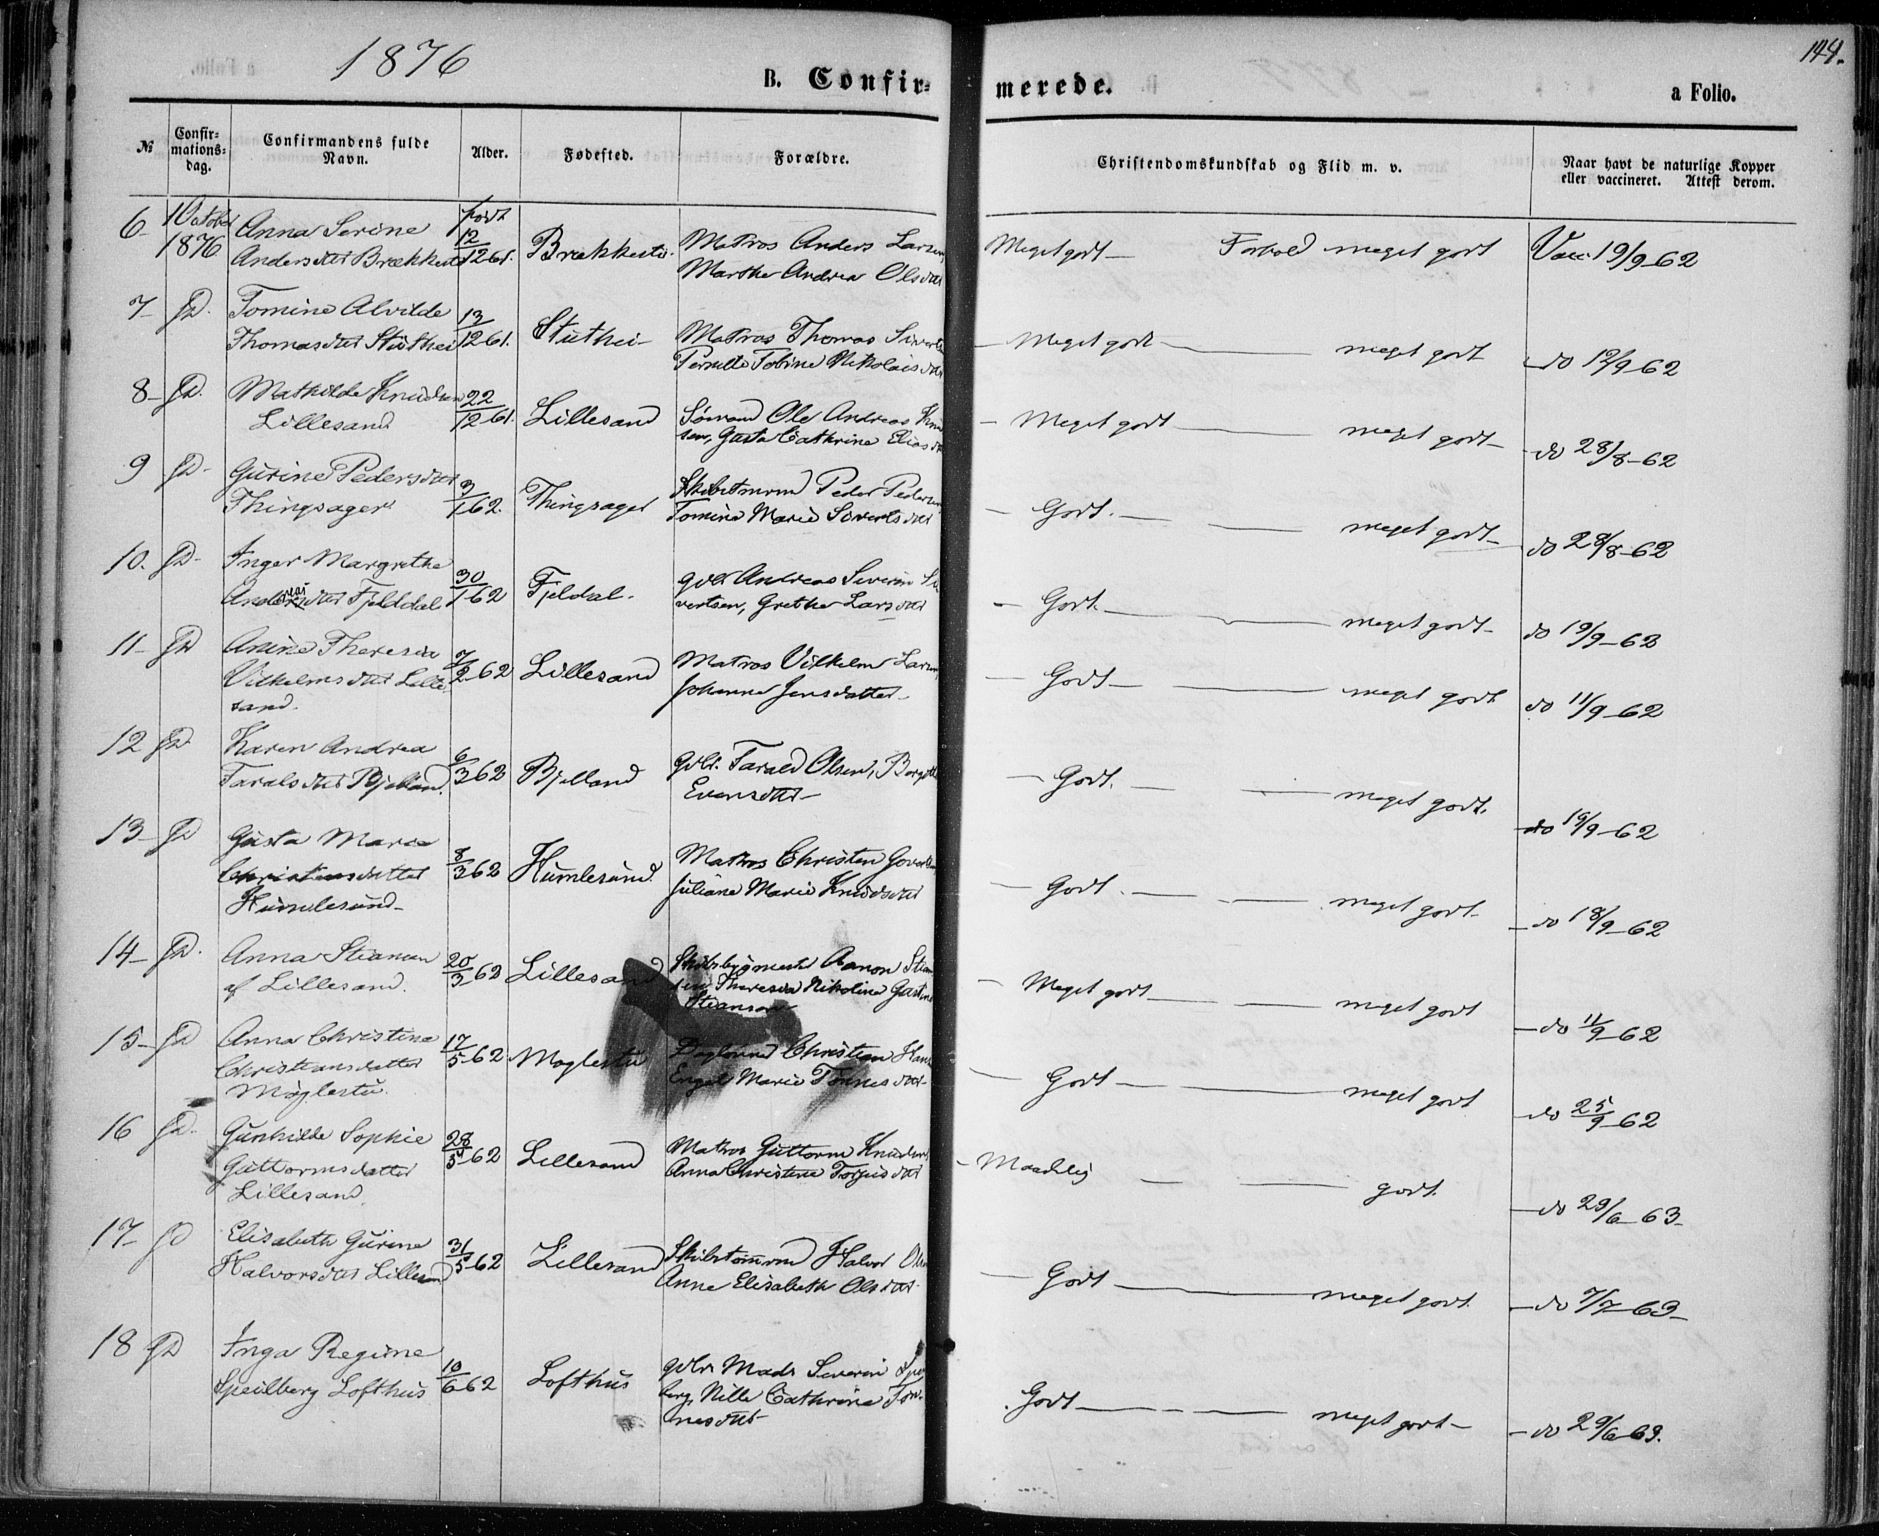 1876
144.
B. Confir-
merede.
a Folio.
№
Confir-
mations-
dag.
Confirmandens fulde
Navn.
Alder.
Fødested.
Forældre.
Christendomskundskab og Flid m. v.
Naar havt de naturlige Kopper
eller vaccineret. Attest derom.
6- 1 October 1876 Anna Serine født
Andersdtr Brækkestø 12/12 61. Brækkestø. Matros Anders Larsen
Marthe Andrea Olsdtr
Meget godt — Forhold meget godt Vacc. 19/9-62
7- gD. Tomine Alvilde
Thomasdtr Stuthei 13/12 61. Stuthei- Matros Thomas
Pernille Tobine Nikolaisdtr
- Meget godt — meget godt - do 12/9-62
8- gD. Mathilde Knudsen
Lillesand 22/12 61. Lillesand Sømand Ole Andreas Knud
sen, Gusta Cathrine Eliasdtr
- Meget godt — meget godt - do 28/8-62
9 gD- Gurine Pedersdtr
Thingsager 3/1 62. Thingsager Peder Pedersen
Tomine Marie Sivertsdtr
- Godt. — meget godt - do 28/8-62
10. gD- Inger Margrethe
Fjelddal 30/1 62 Fjeldal. Andreas Severin Si
vertsen, Grethe Larsdtr
- Godt. — meget godt - do 19/9-62
11- gD Anine Theresia
Vilhelmsdtr Lille
sand. 7/2-62 Lillesand Matros Vilhelm Larsen,
Johanne Jensdatter
- Godt — meget godt - do 11/9-62
12 gD. Karen Andrea
Taralsdtr Bjelland. 6/3 62 Bjelland Tarald Olsen,
Evensdtr
- Godt. — meget godt. - do 19/9-62
13- gD Gusta Marie
Christensdatter
Humlesund- 8/3 62 Humlesund. Matros Christen
Juliane Marie Knudsdtr
- Godt. — meget godt - do 18/9-62
14- gD. Anna Stiansen
af Lillesand. 20/3 62 Lillesand Skibsbygmester Aanon Stian
sen Theresia Nikoline
Stiansen
- Meget godt — meget godt - do 11/9-62
15- gD Anna Christine
Christiansdatter
Møglestu. 17/5-62 Møglestu Christian Hans
Engel Marie Tønnesdtr
- Godt — meget godt - do 25/9-62
16 gD. Gunhilde Sophie
Guttormsdatter
Lillesand. 28/5-62 Lillesand Matros Guttorm Knudsen
Anna Christine Torjusdtr
- Maadelig — godt. - do 29/6-63-
17- gD Elisabeth Gurine
Halvorsdtr Lillesand 31/5-62 Lillesand Skibstømmermd Halvor Olsen
Anne Elisabeth Olsdtr
- Godt — meget godt - do 7/7-63-
18 gD Inga Regine
Speilberg Lofthus 10/6-62 Lofthus Mads Severin Spei
berg, Nille Cathrine Tøn-
nesdtr
Godt — meget godt - do 29/6-63.